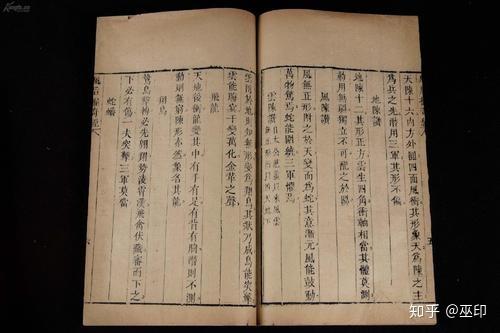 天陳十六內方外圓四面風衝其形象天為陳之主
為兵之先善用三軍其形不偏
地陳讚
地陳十二其形正方雲生四角衝軸相當其體莫測
動用無疆獨立不可配之於陽
風陳讚
風無正形附之於天變而為蛇其意漸元風能鼓動
萬物驚焉蛇能圍繞三軍懼焉
雲陳讚
雲附於地則知無形變為翔鳥其狀乃成鳥能突擊
雲能晦异千變萬化金革之聲
飛龍
天地後衝龍變其中有手有足有背有胸潛則不測
動則無窮陳形亦然象名其龍
翔鳥
鷙鳥擊搏必先翱翔勢淩霄漢飛禽伏藏審而下之
下必有傷一夫突擊三軍莫當
蛇蟠
知乎 @巫印